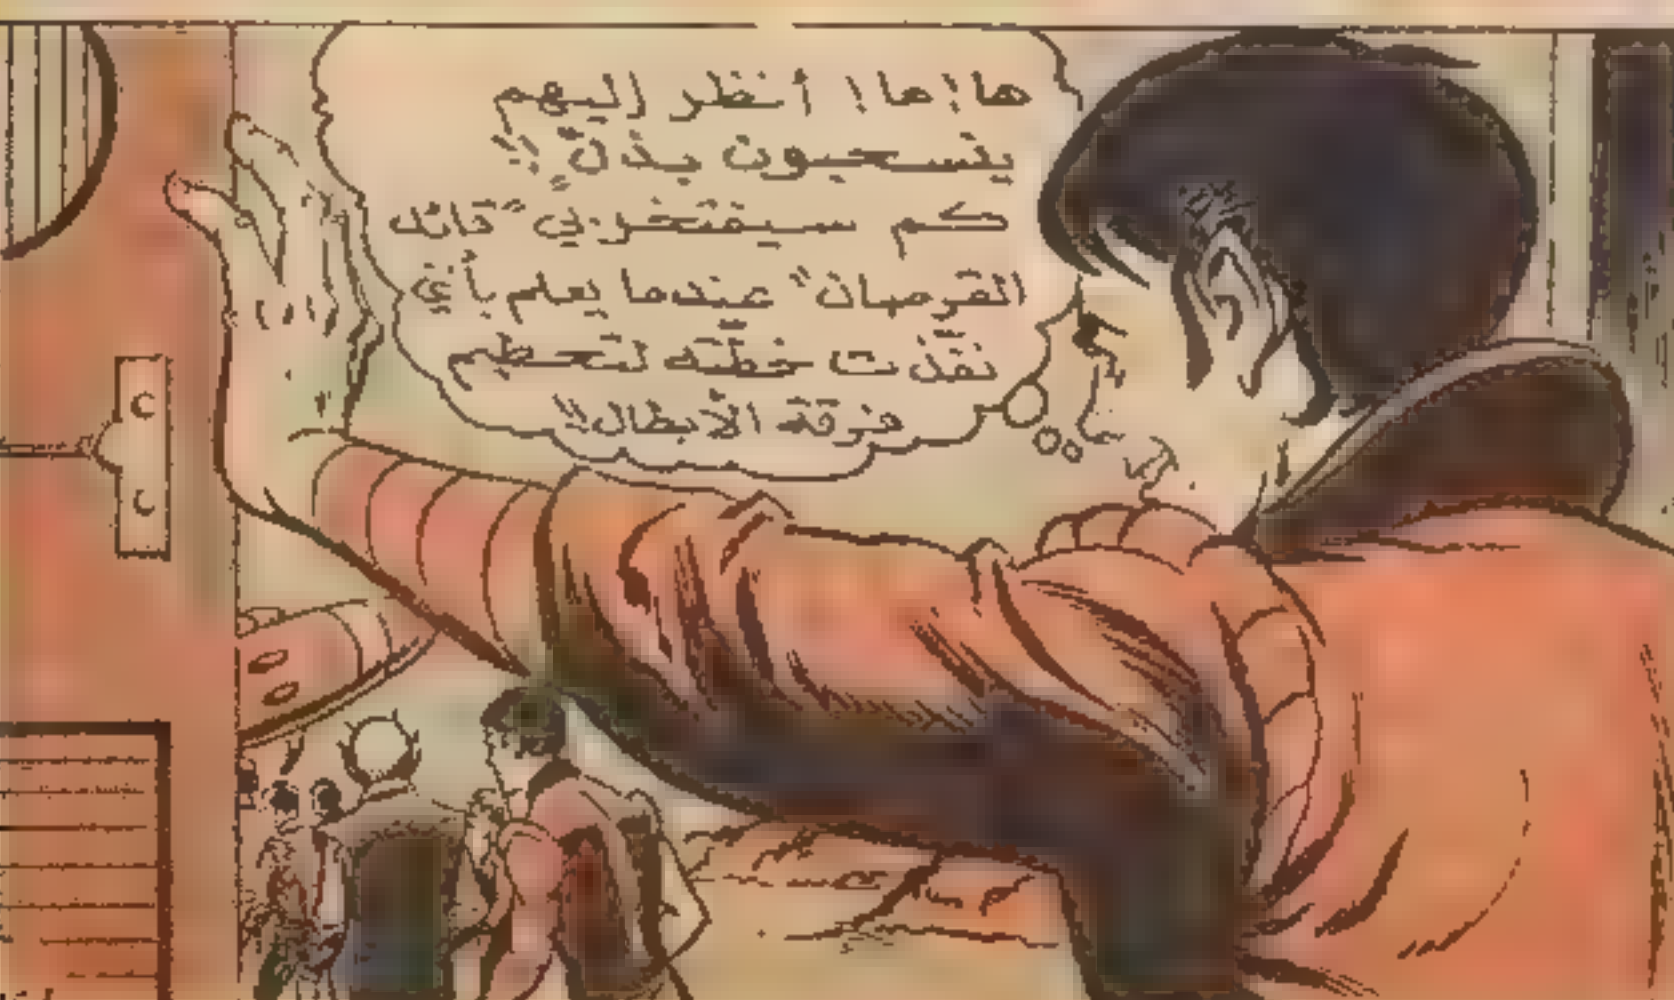 ها! ها! أنظر إليهم
ينسحبون بذلّ!!
كم سيفتخر بي "قائد
القرصان" عندما يعلم بأني
نفّذت خطّته لتحطيم
فرقة الأبطال!!